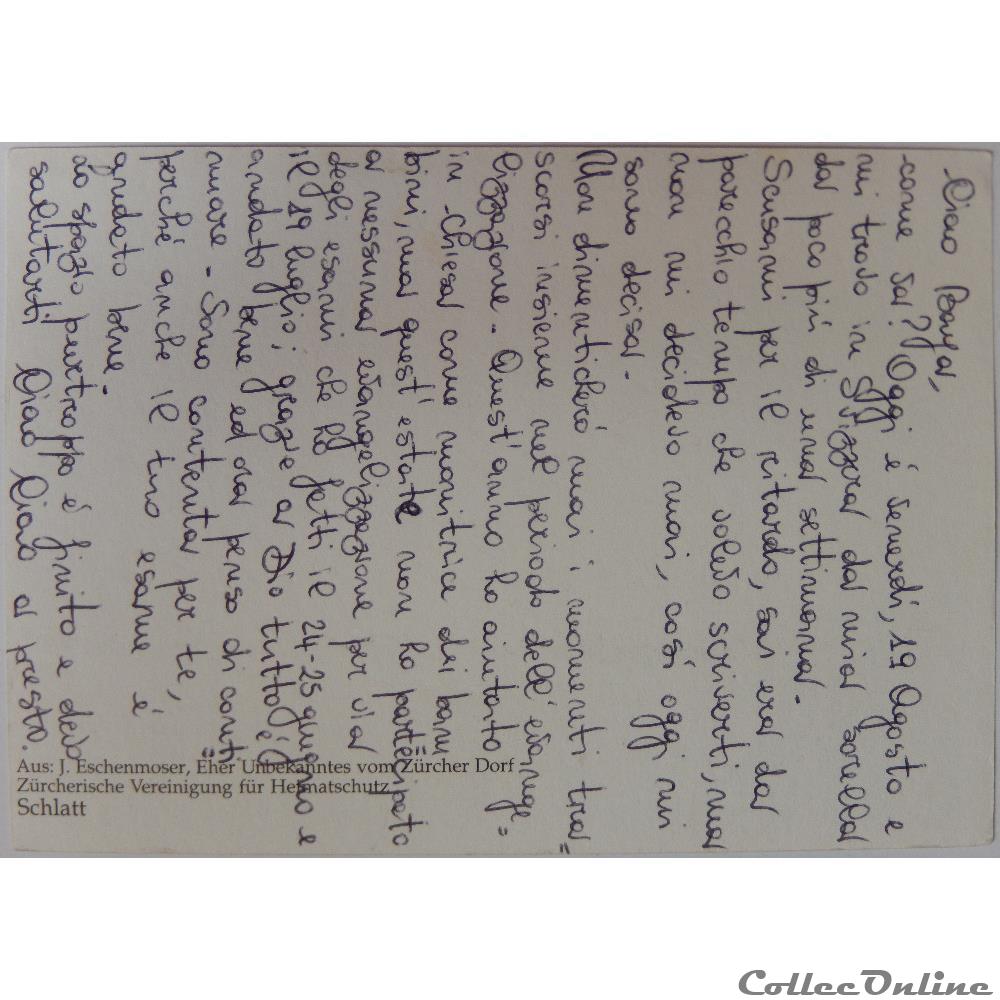 Ciao
come sai? Oggi è venerdì, 19 Agosto e
mi trovo in Svizzera da mia sorella
da poco più di una settimana.
Scusami per il ritardo, sai era da
parecchio tempo che volevo scriverti, ma
non mi decidevo mai, così oggi mi
sono decisa.
Non dimenticherò mai i momenti tra=
scorsi insieme nel periodo dell'evange=
lizzazione. Quest'anno ho aiutato
in Chiesa come monitrice dei bam=
bini, ma quest'estate non ho partecipato
a nessuna evangelizzazione per via
degli esami che ho fatti il 24-25 giugno e
il 19 luglio; grazie a Dio tutto è
andato bene ed ora penso di conti=
nuare - Sono contenta per te,
perché anche il tuo esame è
andato bene.
Lo spazio purtroppo è finito e devo
salutarti Ciao Ciao a presto.
Aus: J. Eschenmoser, Eher Unbekanntes vom Zürcher Dorf
Zürcherische Vereinigung für Heimatschutz
Schlatt
CollecOnline